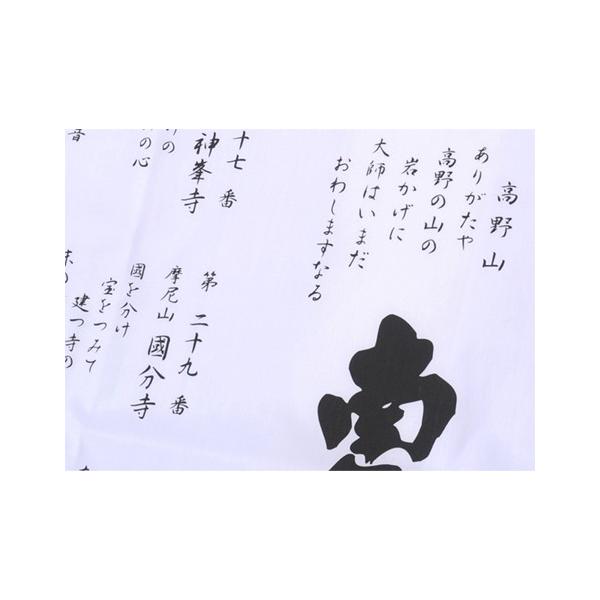 高野山
ありがたや
高野の山の
岩かげに
大師はいまだ
おわしますなる
十七番
神峯寺
の
の心
音
第二十九番
摩尼山國分寺
國を分け
宝をつみて
建つ寺の
末の
南